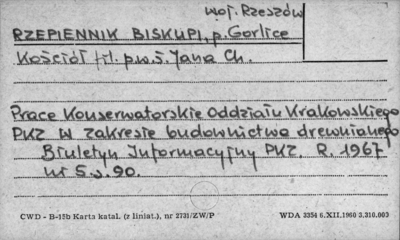 woj. Rzeszów
RZEPIENNIK BISKUPI, p. Gorlice
Kościół fil. p.w. ś. Jana Ch.
Prace Konserwatorskie Oddziału Krakowskiego
PKZ w zakresie budownictwa drewnianego
Biuletyn Informacyjny PKZ. R. 1967
nr 5. s. 90.
CWD - B-15b Karta katal. (z liniat.), nr 2731/ZW/P WDA 3354 6.XII.1960 3.310.003